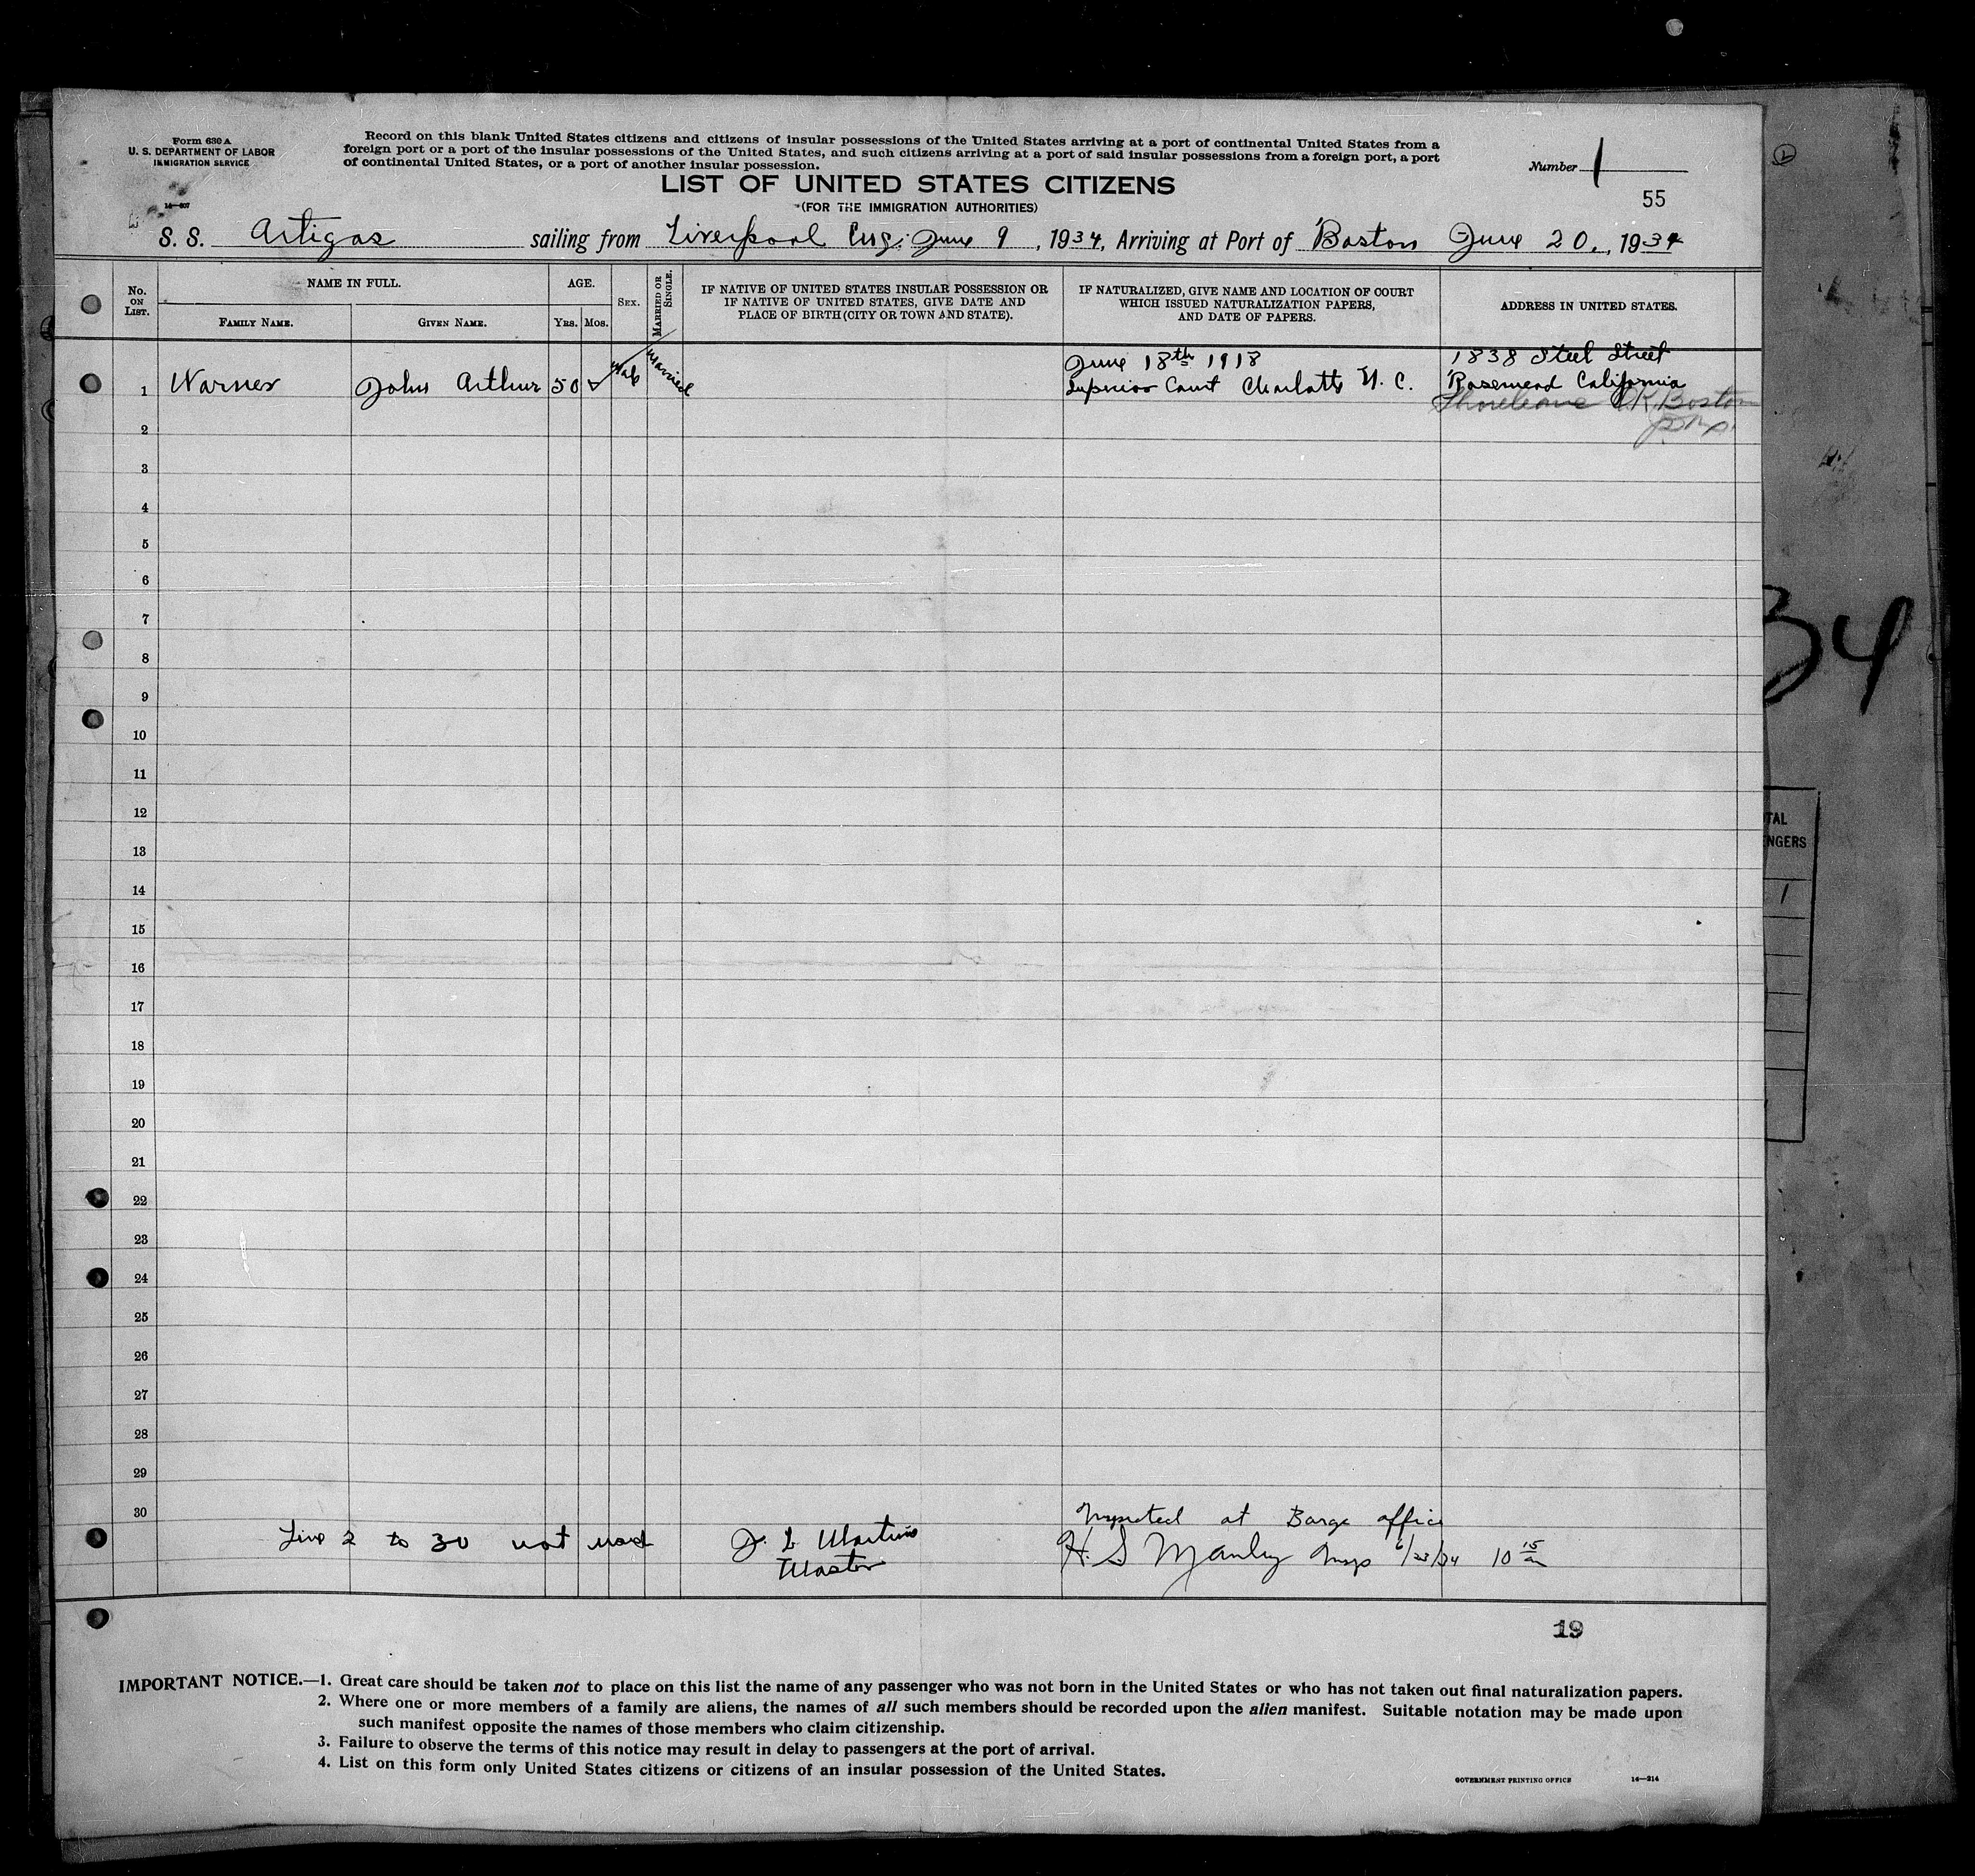 Form 630 A
U. S. DEPARTMENT OF LABOR
IMMIGRATION SERVICE
14—607
Record on this blank United States citizens and citizens of insular possessions of the United States arriving at a port of continental United States from a
foreign port or a port of the insular possessions of the United States, and such citizens arriving at a port of said insular possessions from a foreign port, a port
of continental United States, or a port of another insular possession.
Number 1
LIST OF UNITED STATES CITIZENS
(FOR THE IMMIGRATION AUTHORITIES)
55
S. S. Artigas sailing from Liverpool Eng. June 9, 1934, Arriving at Port of Boston June 20, 1934
No. ON LIST.
NAME IN FULL.
FAMILY NAME.
GIVEN NAME.
AGE.
YRS. MOS.
SEX.
MARRIED OR SINGLE.
IF NATIVE OF UNITED STATES INSULAR POSSESSION OR
IF NATIVE OF UNITED STATES, GIVE DATE AND
PLACE OF BIRTH (CITY OR TOWN AND STATE).
IF NATURALIZED, GIVE NAME AND LOCATION OF COURT
WHICH ISSUED NATURALIZATION PAPERS,
AND DATE OF PAPERS.
ADDRESS IN UNITED STATES.
June 18th 1918
1838 Steel Street
1 Warner John Arthur 50 Male Married Superior Court Charlotte N. C. Rosemead California
Shoreleave OK Boston
2
3
4
5
6
7
8
9
10
11
12
13
14
15
16
17
18
19
20
21
22
23
24
25
26
27
28
29
30
Line 2 to 30 not used
Master
Inspected at Barge office
H. S. Manley Insp 6/23/34 10 15 am
19
IMPORTANT NOTICE.—1. Great care should be taken not to place on this list the name of any passenger who was not born in the United States or who has not taken out final naturalization papers.
2. Where one or more members of a family are aliens, the names of all such members should be recorded upon the alien manifest. Suitable notation may be made upon
such manifest opposite the names of those members who claim citizenship.
3. Failure to observe the terms of this notice may result in delay to passengers at the port of arrival.
4. List on this form only United States citizens or citizens of an insular possession of the United States.
GOVERNMENT PRINTING OFFICE
14—214
34
TAL
NGERS
1